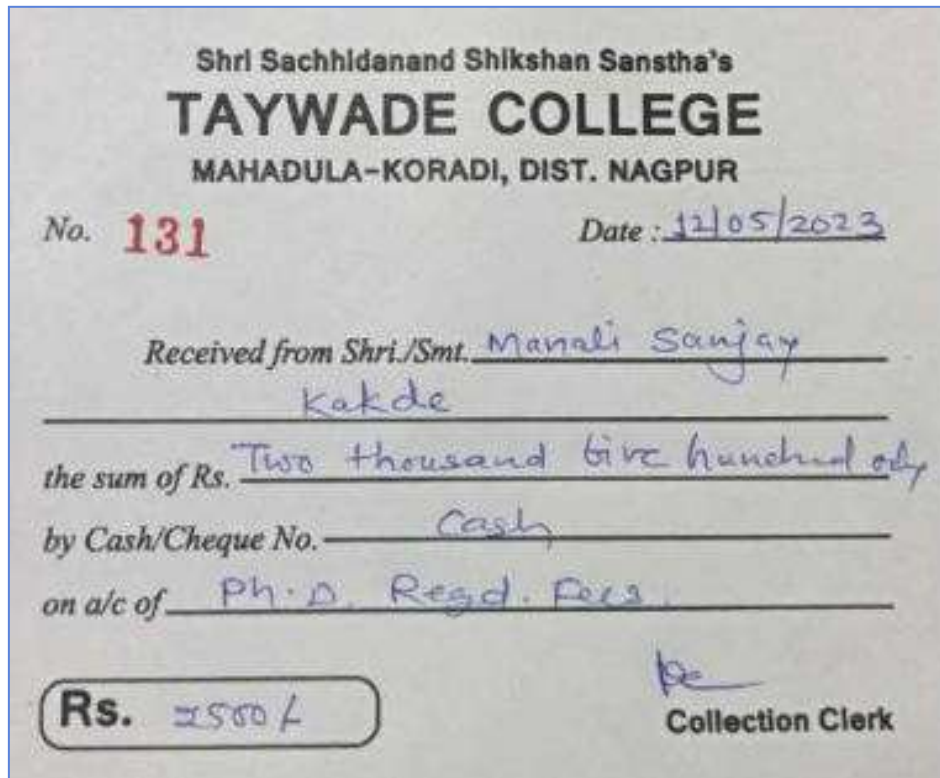 Shri Sachhidanand Shikshan Sanstha's
TAYWADE COLLEGE
MAHADULA-KORADI, DIST. NAGPUR
No. 131 Date : 12/05/2023
Received from Shri./Smt. Manali Sanjay
Kakde
the sum of Rs. Two thousand five hundred only
by Cash/Cheque No. Cash
on a/c of Ph.D. Regd. Fees.
Rs. 2500/-
Collection Clerk